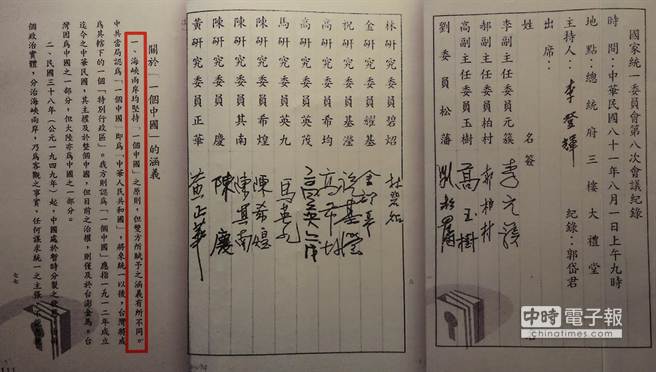 國家統一委員會第八次會議紀錄
時間：中華民國八十一年八月一日上午九時
地點：總統府三樓大禮堂
主持人：李登輝
紀錄：郭岱君
出席：
姓名
簽
李副主任委員元簇 李元簇
郝副主任委員柏村 郝柏村
高副主任委員玉樹 高玉樹
劉委員松藩 劉松藩
林研究委員碧炤 林碧炤
金研究委員耀基 金耀基
高研究委員英茂 高英茂
馬研究委員英九 馬英九
陳研究委員希煌 陳希煌
陳研究委員其南 陳其南
陳研究委員慶 陳慶
黃研究委員正華 黃正華
關於「一個中國」的涵義
一、海峽兩岸均堅持「一個中國」之原則，但雙方所賦予之涵義有所不同。
中共當局認為「一個中國」即為「中華人民共和國」，將來統一以後，台灣將成
為其轄下的一個「特別行政區」。我方則認為「一個中國」應指一九一二年成立
迄今之中華民國，其主權及於整個中國，但目前之治權，則僅及於台澎金馬。台
灣固為中國之一部分，但大陸亦為中國之一部分。
二、民國三十八年（公元一九四九年）起，中國處於暫時分裂之
個政治實體，分治海峽兩岸，乃為客觀之事實，任何謀求統一之主張
七七
中時電子報
chinatimes.com